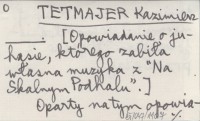 0
TETMAJER Kazimierz
. [Opowiadanie o ju-
hasie, którego zabiła
własna muzyka z "Na
Skalnym Podhalu".]
Oparty na tym opowia-